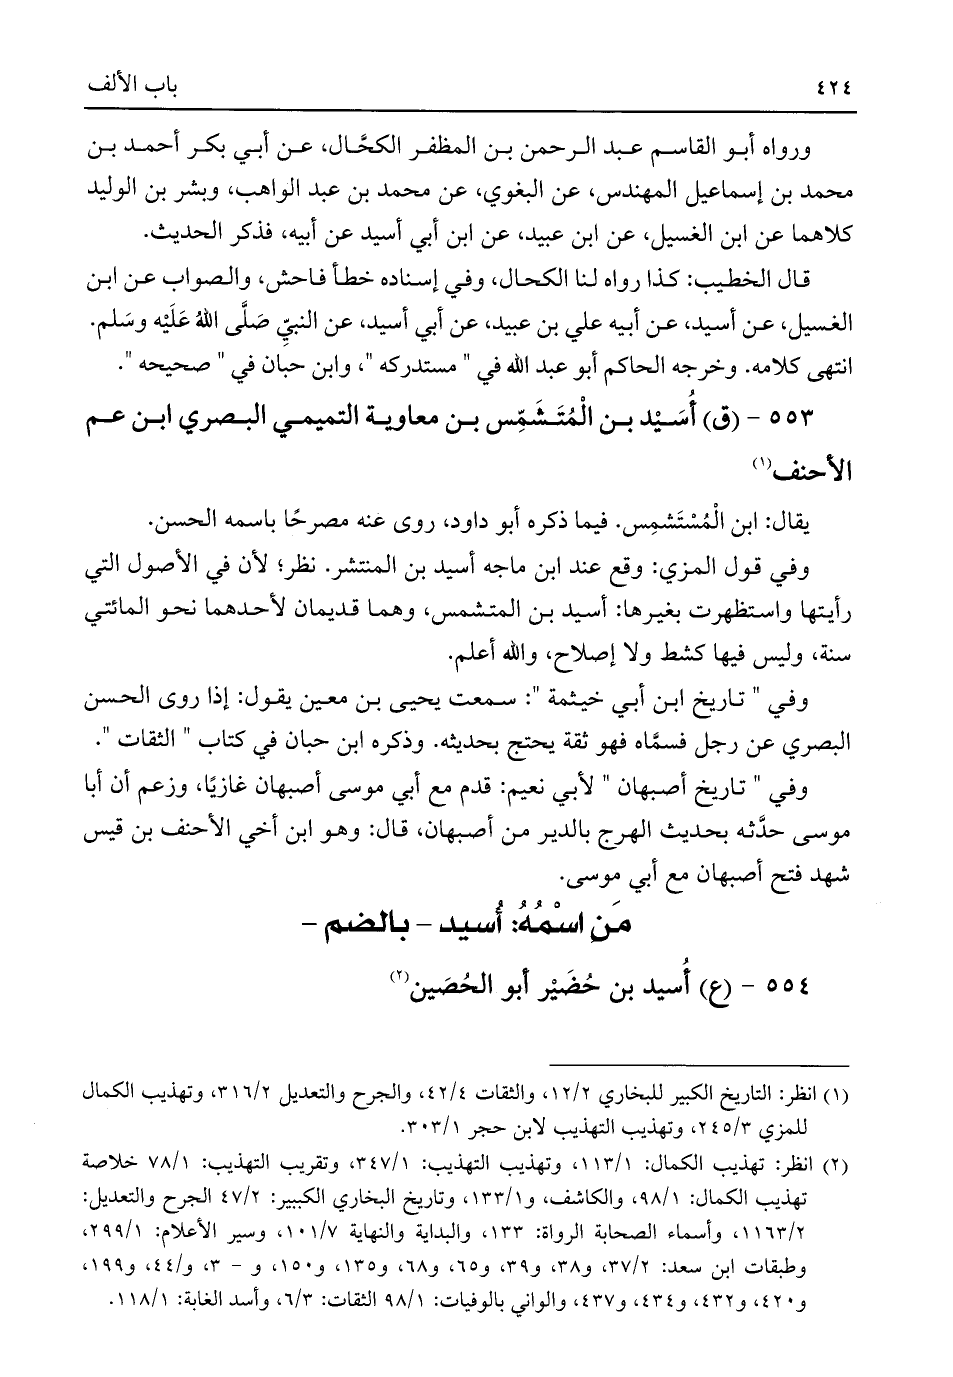 ٤٢٤
باب الألف
ورواه أبو القاسم عبد الرحمن بن المظفر الكحَّال، عن أبي بكر أحمد بن
محمد بن إسماعيل المهندس، عن البغوي، عن محمد بن عبد الواهب، وبشر بن الوليد
كلاهما عن ابن الغسيل، عن ابن عبيد، عن ابن أبي أسيد عن أبيه، فذكر الحديث.
قال الخطيب: كذا رواه لنا الكحال، وفي إسناده خطأ فاحش، والصواب عن ابن
الغسيل، عن أسيد، عن أبيه علي بن عبيد، عن أبي أسيد، عن النبيِّ صَلَّى اللهُ عَلَيْه وسَلم.
انتهى كلامه. وخرجه الحاكم أبو عبد الله في " مستدركه "، وابن حبان في " صحيحه ".
٥٥٣ - (ق) أُسَيْد بن الْمُتَشَمِّس بن معاوية التميمي البصري ابن عم
الأحنف(١)
يقال: ابن الْمُسْتَشمِس. فيما ذكره أبو داود، روى عنه مصرحًا باسمه الحسن.
وفي قول المزي: وقع عند ابن ماجه أسيد بن المنتشر. نظر؛ لأن في الأصول التي
رأيتها واستظهرت بغيرها: أسيد بن المتشمس، وهما قديمان لأحدهما نحو المائتي
سنة، وليس فيها كشط ولا إصلاح، والله أعلم.
وفي " تاريخ ابن أبي خيثمة ": سمعت يحيى بن معين يقول: إذا روى الحسن
البصري عن رجل فسمَّاه فهو ثقة يحتج بحديثه. وذكره ابن حبان في كتاب " الثقات ".
وفي " تاريخ أصبهان " لأبي نعيم: قدم مع أبي موسى أصبهان غازيًا، وزعم أن أبا
موسى حدَّثه بحديث الهرج بالدير من أصبهان، قال: وهو ابن أخي الأحنف بن قيس
شهد فتح أصبهان مع أبي موسى.
مَن اسْمُهُ: أُسيد - بالضم -
٥٥٤ - (ع) أُسيد بن حُضَيْر أبو الحُصَين(٢)
(١) انظر: التاريخ الكبير للبخاري ١٢/٢، والثقات ٤٢/٤، والجرح والتعديل ٣١٦/٢، وتهذيب الكمال
للمزي ٢٤٥/٣، وتهذيب التهذيب لابن حجر ٣٠٣/١.
(٢) انظر: تهذيب الكمال: ١١٣/١، وتهذيب التهذيب: ٣٤٧/١، وتقريب التهذيب: ٧٨/١ خلاصة
تهذيب الكمال: ٩٨/١، والكاشف، و١٣٣/١، وتاريخ البخاري الكبير: ٤٧/٢ الجرح والتعديل:
١١٦٣/٢، وأسماء الصحابة الرواة: ١٣٣، والبداية والنهاية ١٠١/٧، وسير الأعلام: ٢٩٩/١،
وطبقات ابن سعد: ٣٧/٢، و٣٨، و٣٩، و٦٥، و٦٨، و١٣٥، و١٥٠، و - ٣، و/٤٤، و١٩٩،
و٤٢٠، و٤٣٢، و٤٣٤، و٤٣٧، والواني بالوفيات: ٩٨/١ الثقات: ٦/٣، وأسد الغابة: ١١٨/١.